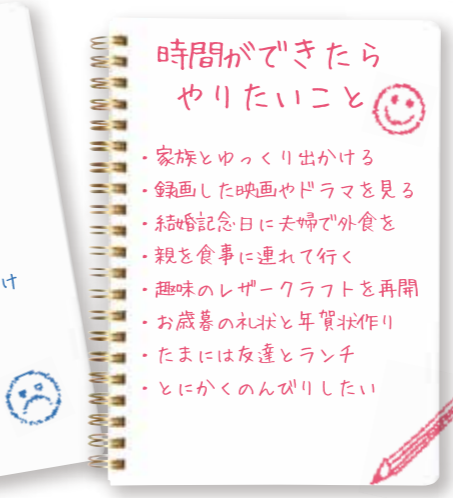 時間ができたら
やりたいこと
・家族とゆっくり出かける
・録画した映画やドラマを見る
・結婚記念日に夫婦で外食を
・親を食事に連れて行く
・趣味のレザークラフトを再開
・お歳暮の礼状と年賀状作り
・たまには友達とランチ
・とにかくのんびりしたい
け